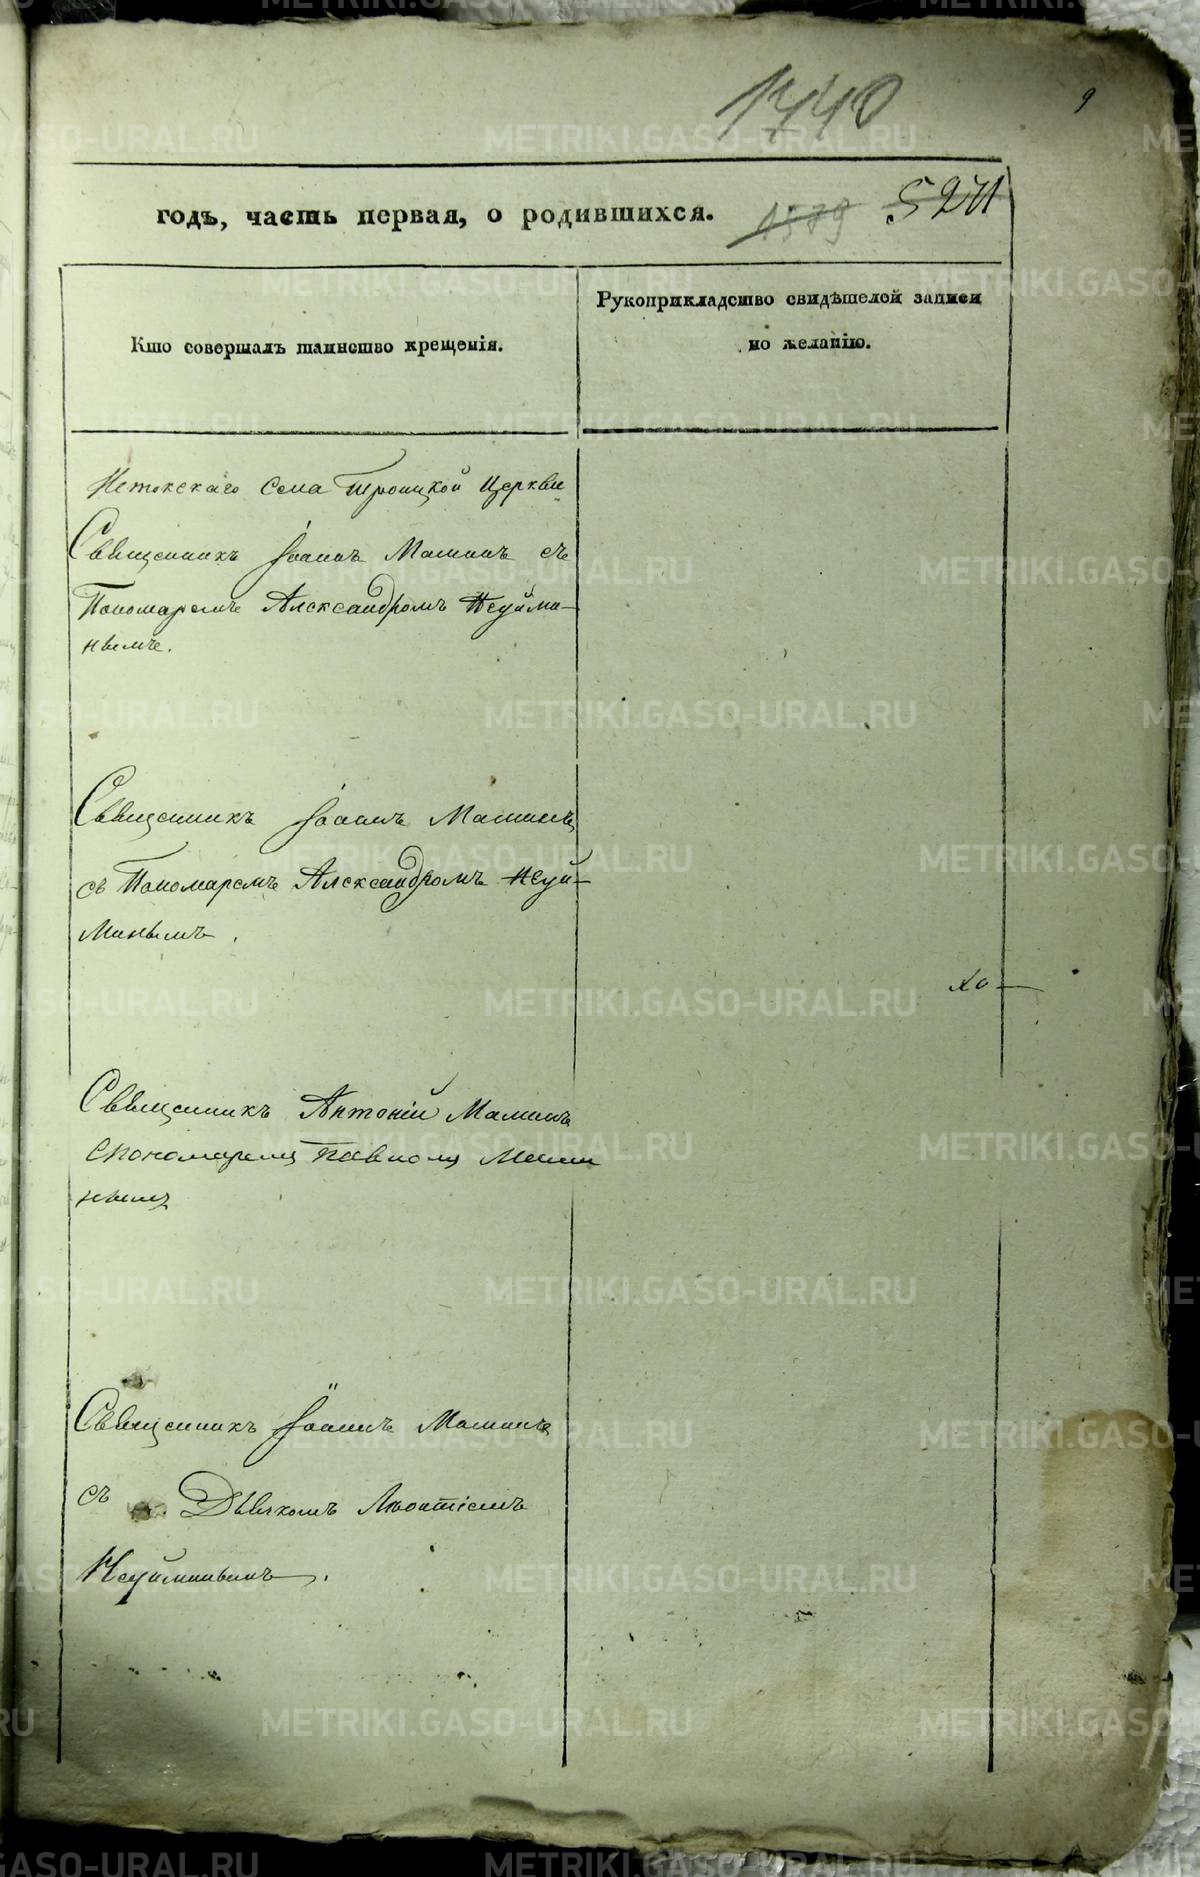 1440
9
годъ, часть первая, о родившихся. 1579 527
Кто совершалъ таинство крещенія.
Рукоприкладство свидѣтелей записи
по желанію.
Истокскаго Села Троицкой Церкви
Священникъ Іоаннъ Маминъ съ
Пономаремъ Александромъ Неуйми-
нымъ.
Священникъ Іоаннъ Маминъ
съ Пономаремъ Александромъ Неуй-
минымъ.
Священникъ Антоній Маминъ
спономаремъ Павломъ Мами
нымъ
Священникъ Іоаннъ Маминъ
съ Дьячкомъ Леонтіемъ
Неуйминымъ.
METRIKI.GASO-URAL.RU